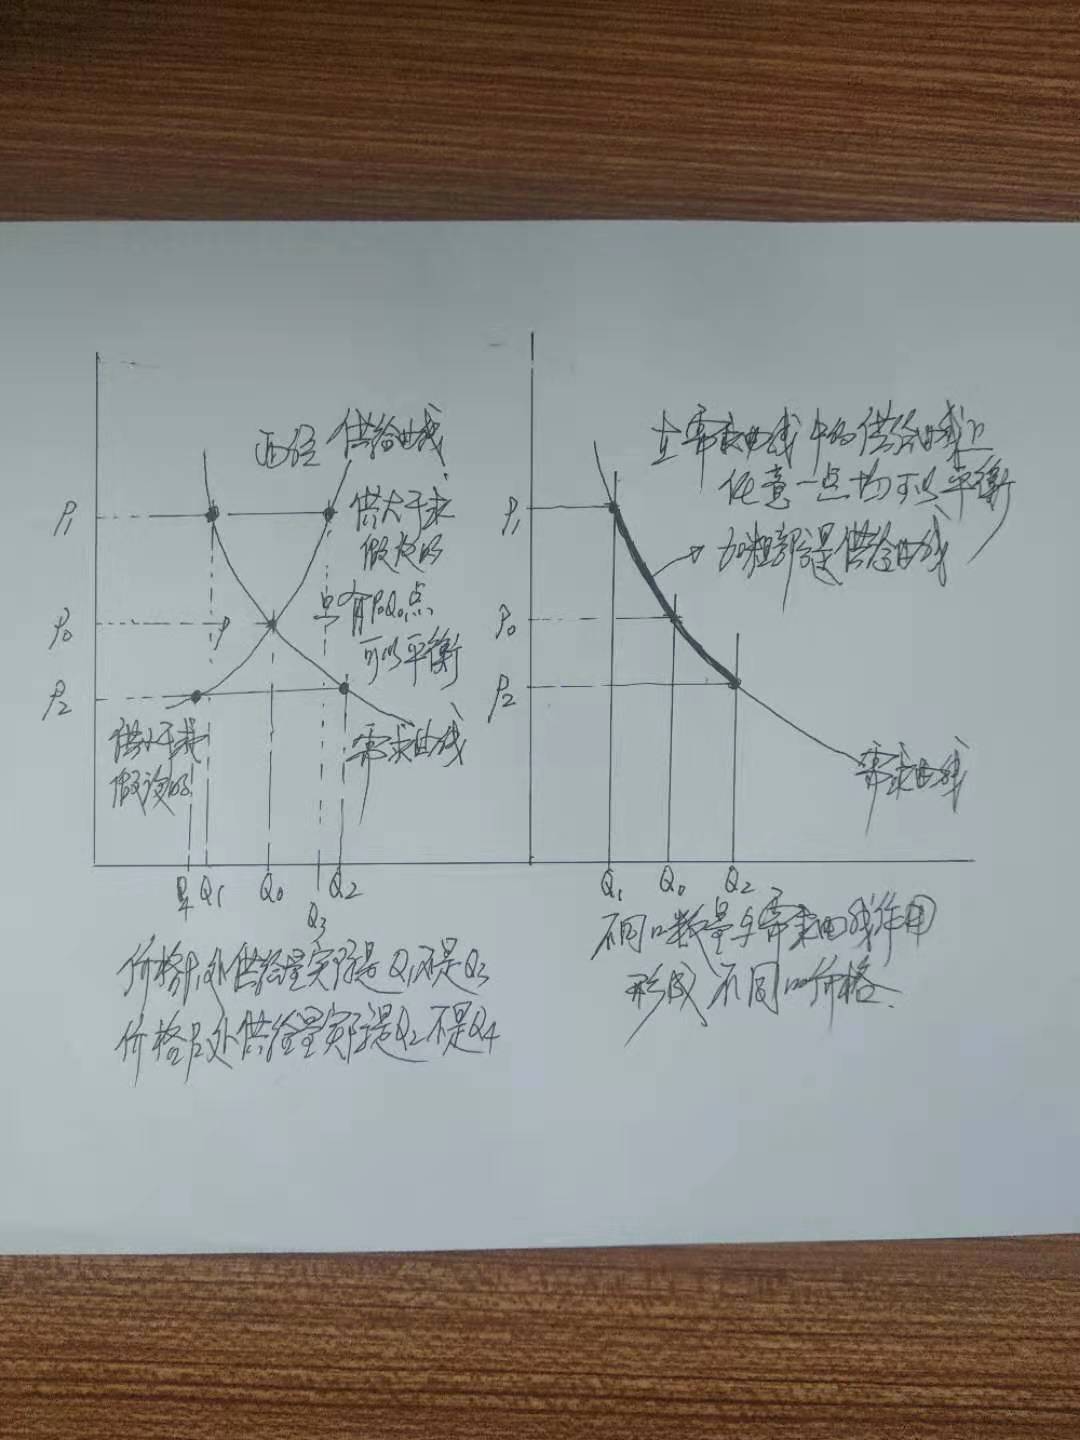 西经 供给曲线
P₁
供大于求
假设的
只有P₀Q₀点
可以平衡
P₀
P
P₂
供小于求
假设的
需求曲线
Q₄ Q₁ Q₀ Q₃ Q₂
价格P₁处供给量实际是Q₁不是Q₃
价格P₂处供给量实际是Q₂不是Q₄
在需求曲线中的供给曲线上
任意一点均可以平衡
加粗部分是供给曲线
P₁
P₀
P₂
需求曲线
Q₁ Q₀ Q₂
不同的数量与需求曲线作用
形成不同的价格.